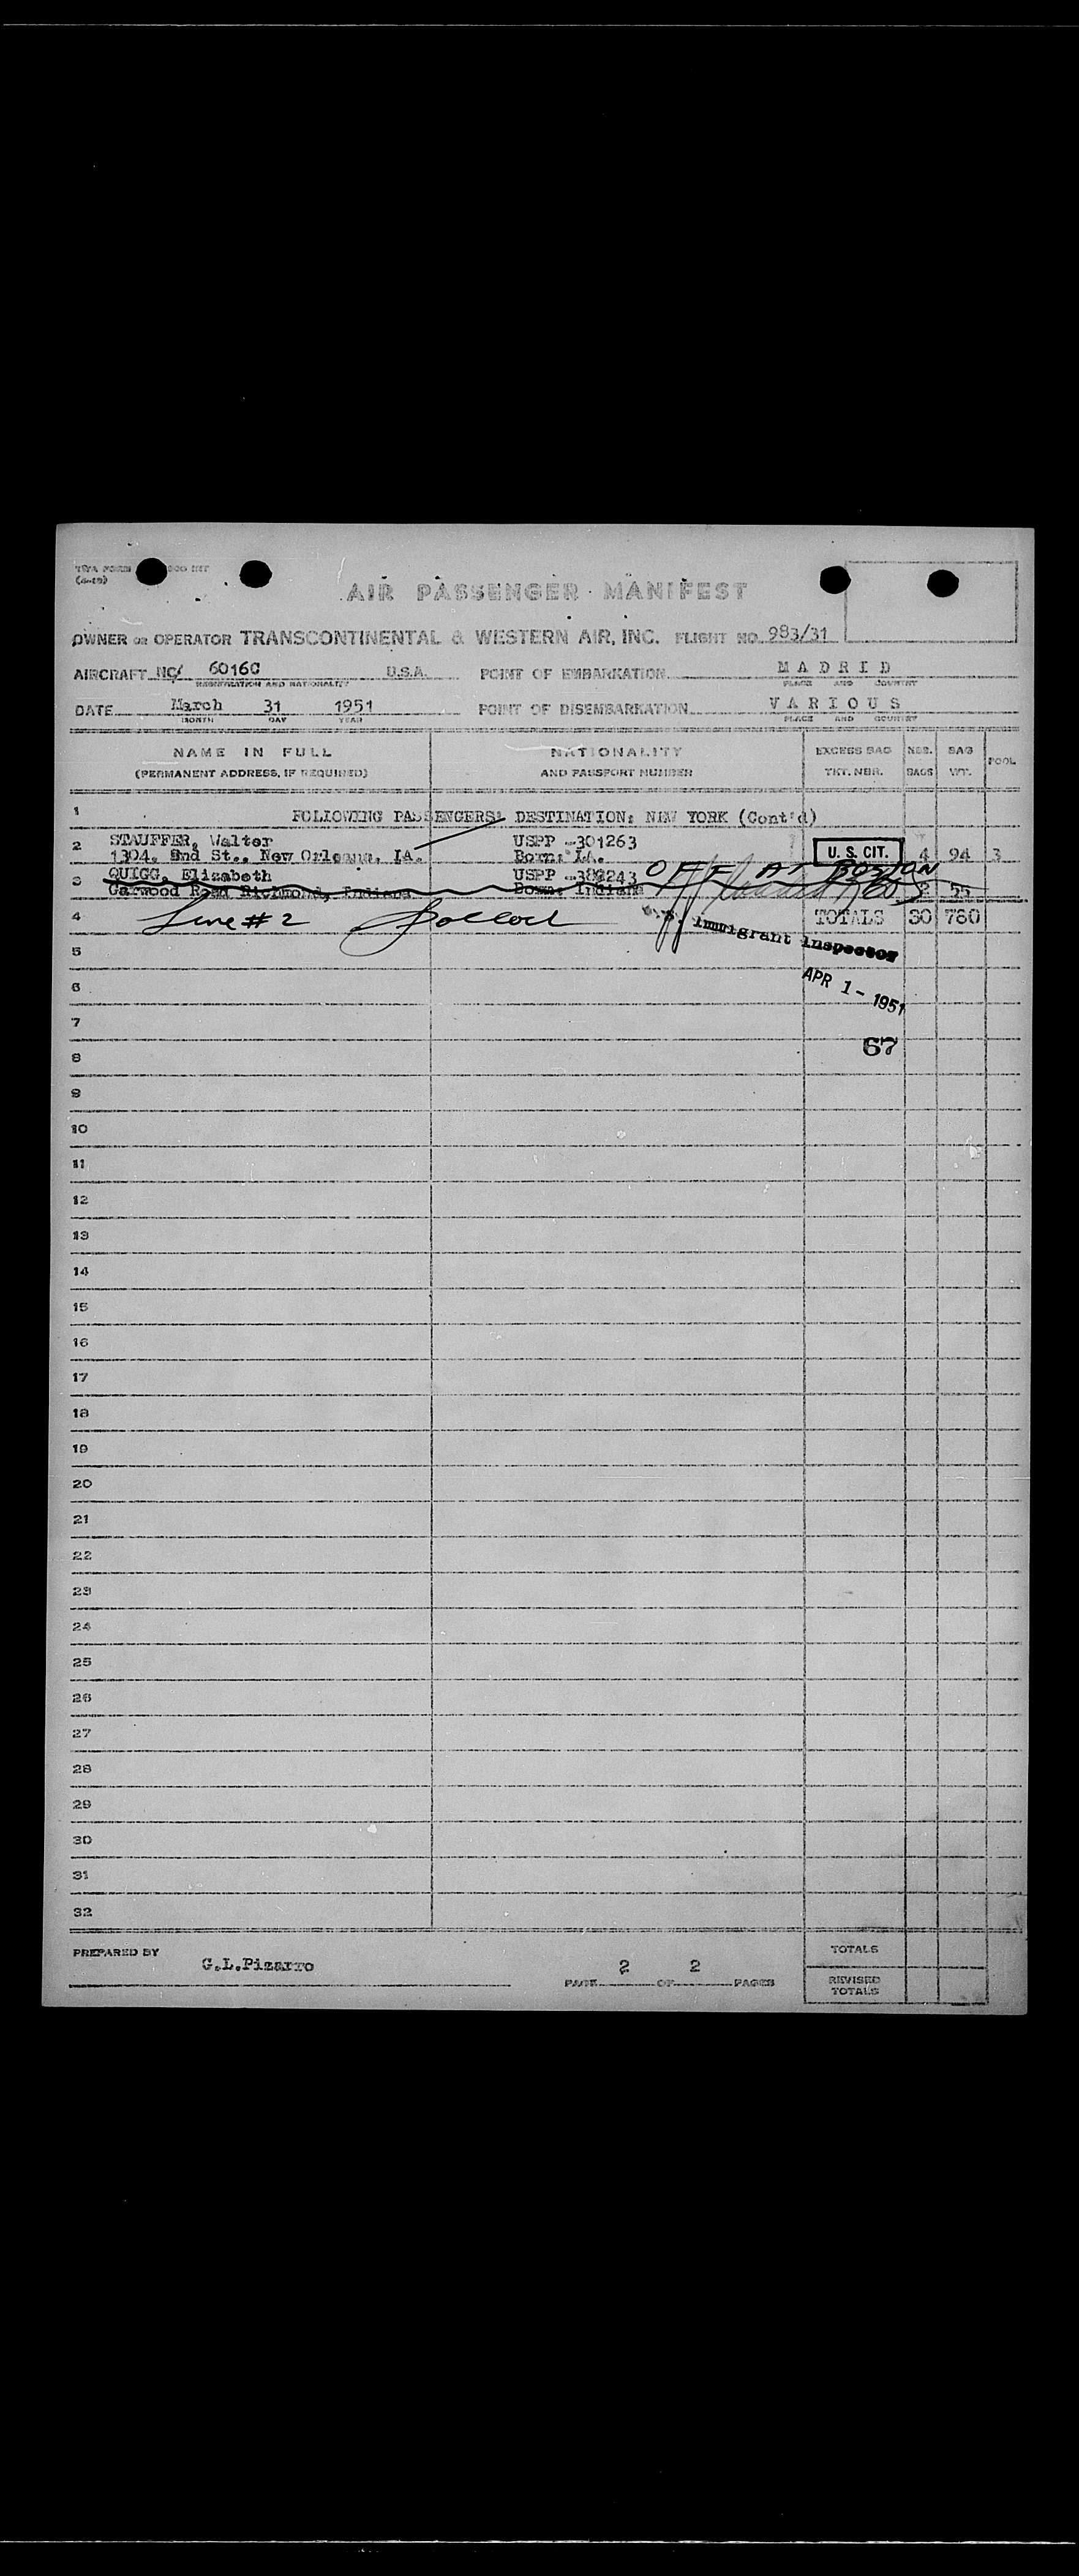 TWA FORM
(4-48)
AIR PASSENGER MANIFEST
OWNER OR OPERATOR TRANSCONTINENTAL & WESTERN AIR, INC. FLIGHT NO. 983/31
AIRCRAFT NC/ 6016C U.S.A. POINT OF EMBARKATION MADRID
REGISTRATION AND NATIONALITY PLACE AND COUNTRY
DATE March 31 1951 POINT OF DISEMBARKATION VARIOUS
MONTH DAY YEAR PLACE AND COUNTRY
NAME IN FULL NATIONALITY EXCESS BAG NBR. BAG POOL
(PERMANENT ADDRESS, IF REQUIRED) AND PASSPORT NUMBER TKT. NBR. BAGS WT.
1 FOLLOWING PASSENGERS: DESTINATION: NEW YORK (Cont'd)
2 STAUFFER, Walter USPP -301263 U. S. CIT. 4 94 3
1304. 2nd St., New Orleans, LA. Born: LA.
3 QUIGG, Elizabeth USPP -382243 OFF AT BOSTON 2 55
Garwood Road Richmond, Indiana Born: Indiana
4 Line # 2 TOTALS 30 780
Immigrant Inspector
5
APR 1 - 1951
6
7
67
8
9
10
11
12
13
14
15
16
17
18
19
20
21
22
23
24
25
26
27
28
29
30
31
32
PREPARED BY G.L.Pizarro TOTALS
PAGE 2 OF 2 PAGES
REVISED TOTALS